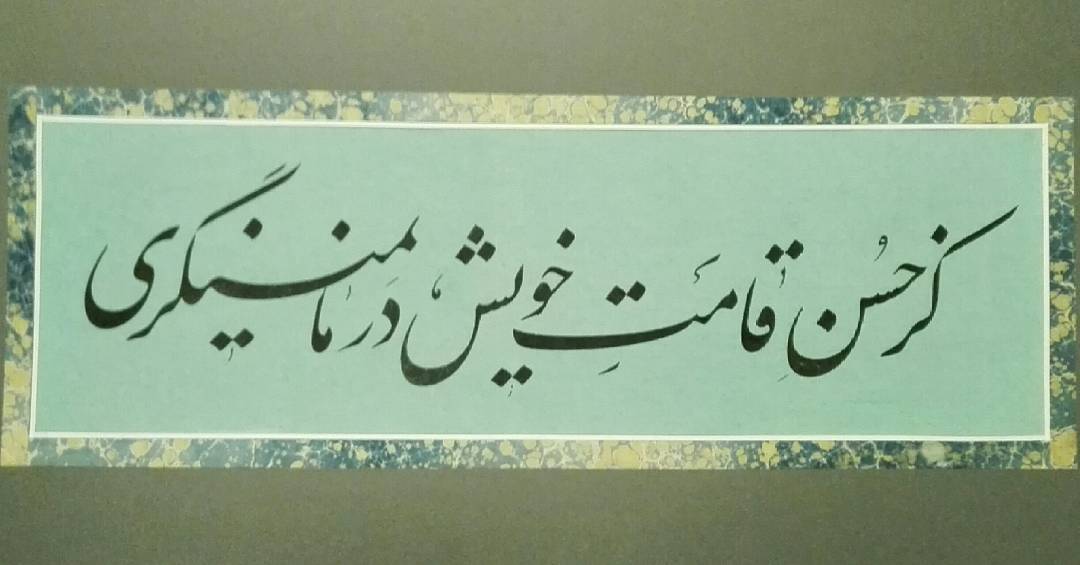 کز حُسنِ قامَتِ خویش دَر ما نمینگری